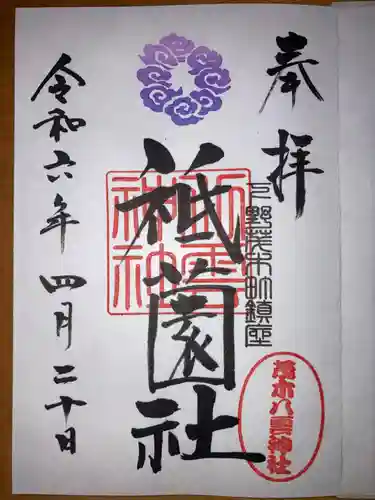 奉拝
下野茂木町鎮座
茂木八雲神社
祇園社
神社
令和六年四月二十日